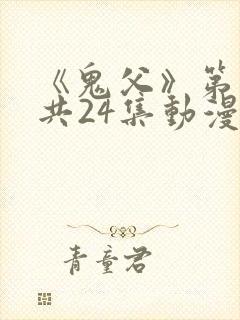 《鬼父》第
共24集動漫
青童君